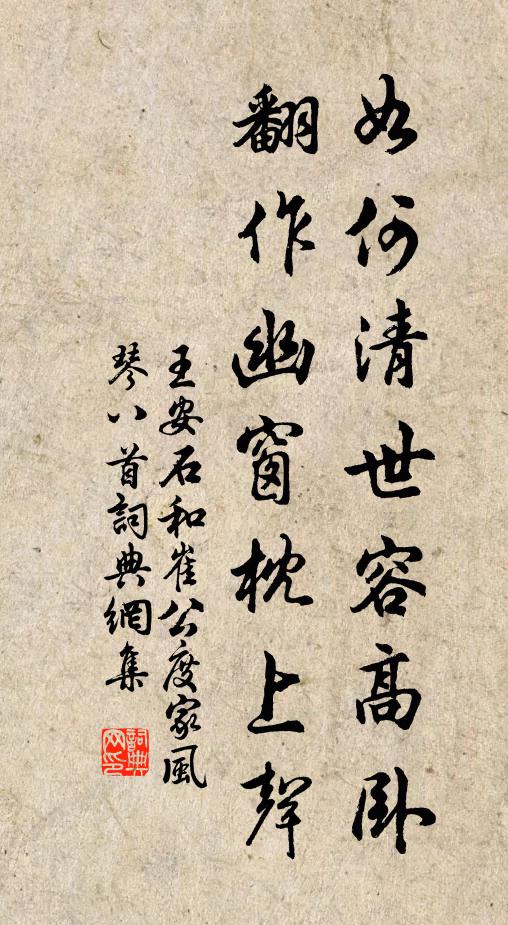 如何清世容高臥
翻作幽窗枕上聲
王安石和崔公度家風
琴八首詞典網集
詞典
网印